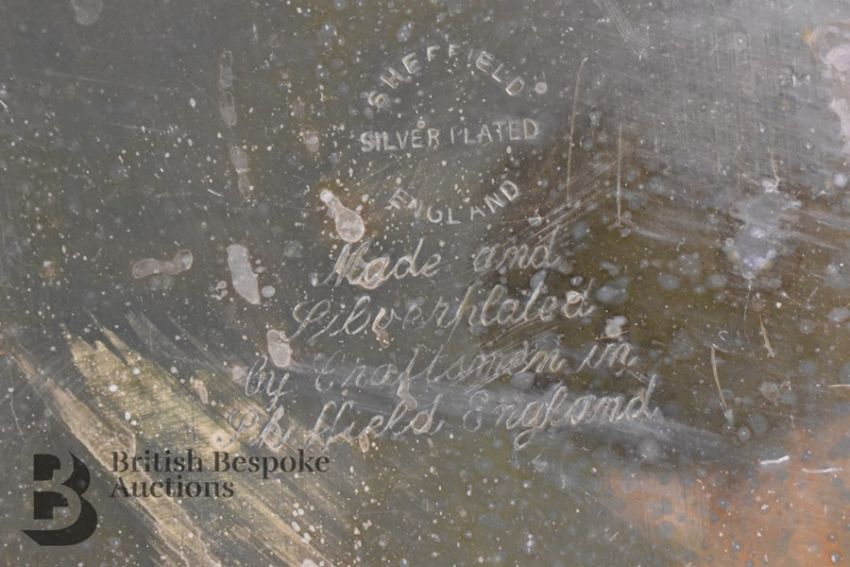 SHEFFIELD
SILVER PLATED
ENGLAND
Made and
Silverplated
by Craftsmen in
Sheffield England
British Bespoke
Auctions